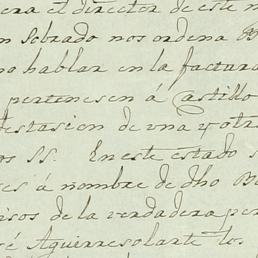 era el director de este n
n Sobrado nos ordena B
no hablar en la factura
pertenesen á Castillo
testasion de una y otra
os SS. En este estado s
es á nombre de dho B
isos de la verdadera per
é Aguirresolarte los